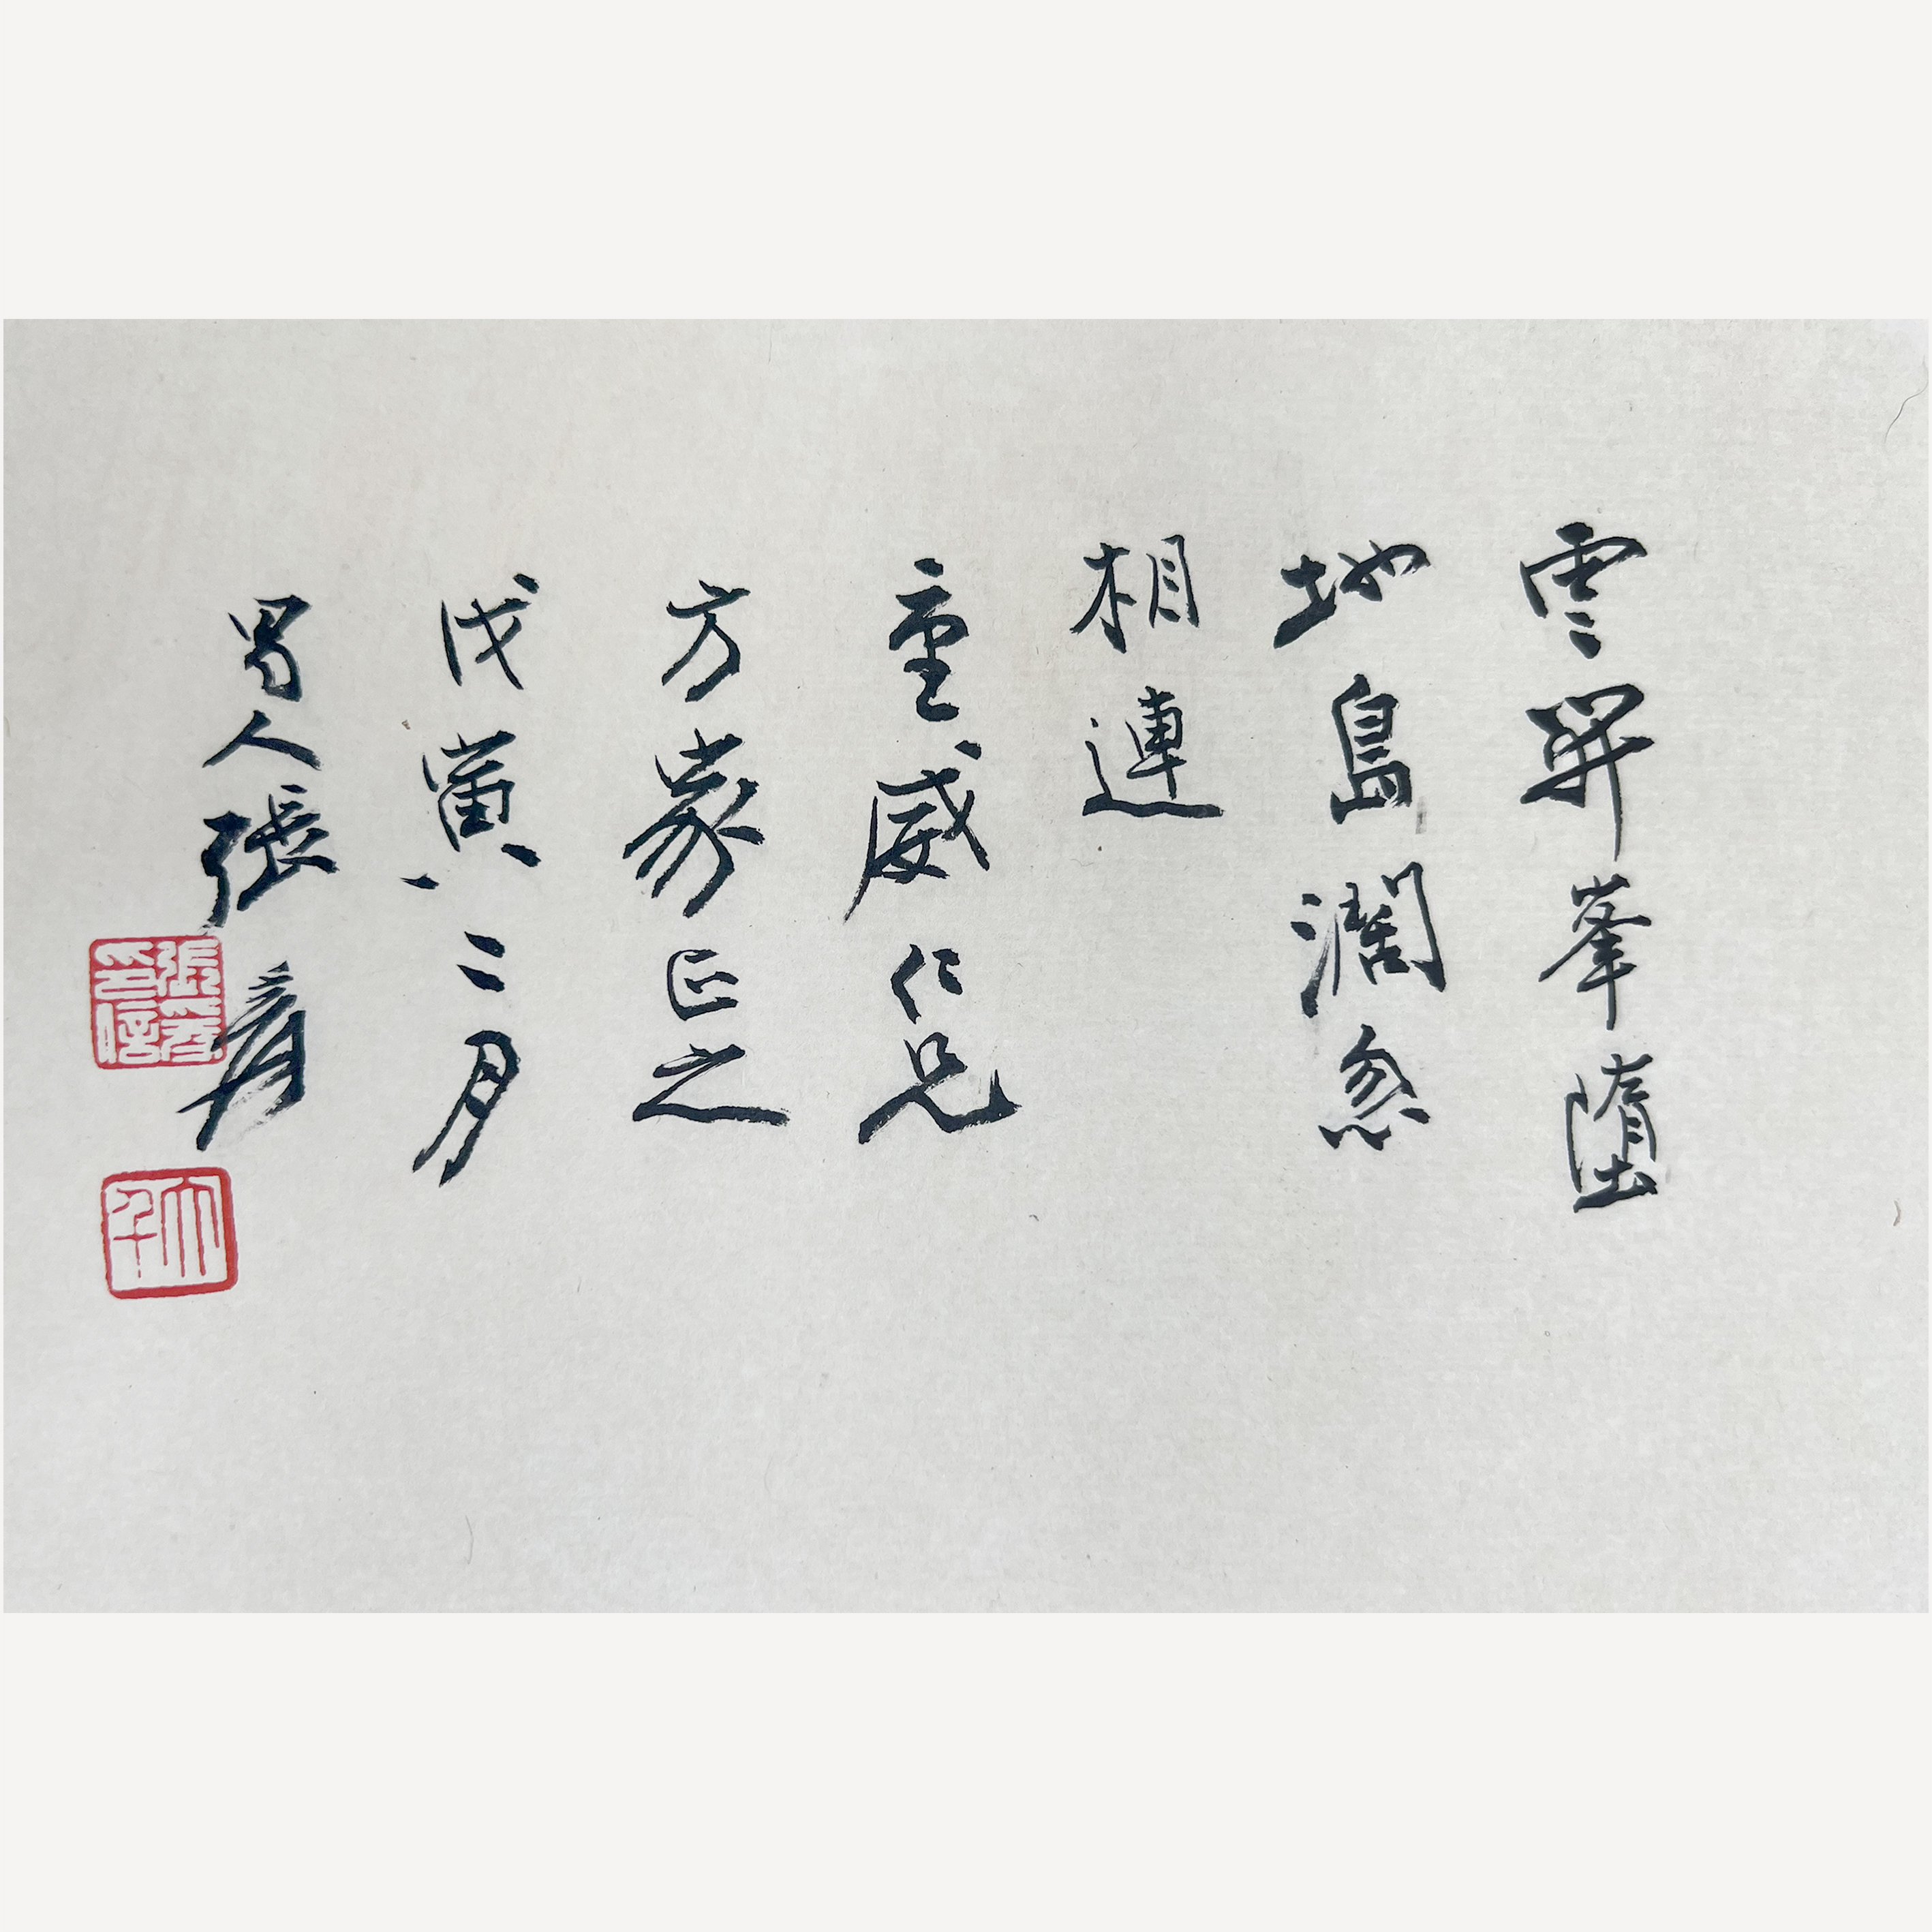 雲開峯墮
地島濶忽
相連
重威仁兄
方家正之
戊寅二月
蜀人張爰
張爰印信
大千